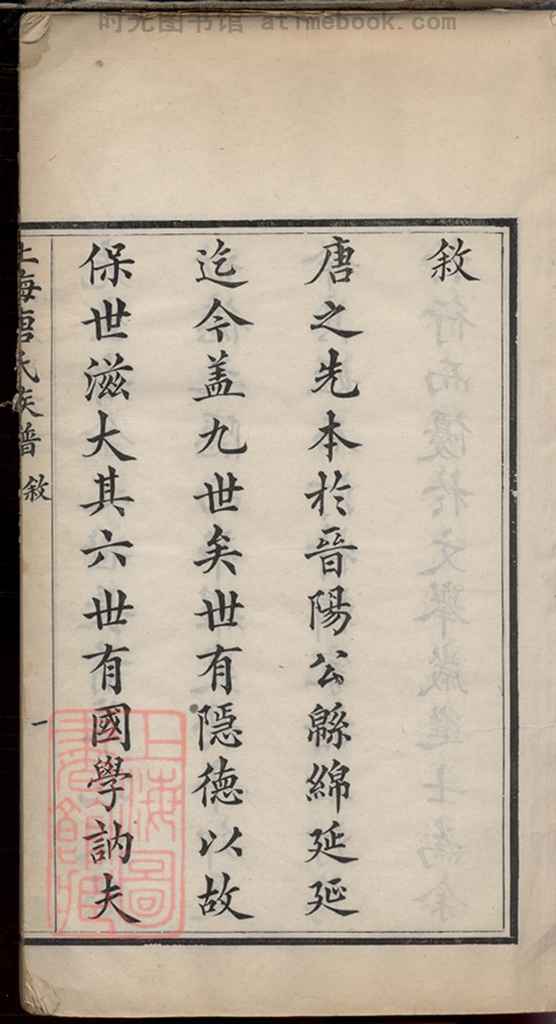 时光图书馆 atimebook.com
敘
唐之先本於晉陽公緜綿延延
迄今盖九世矣世有隱德以故
保世滋大其六世有國學訥夫
上海唐氏族譜 敘
一
上海圖
書館藏